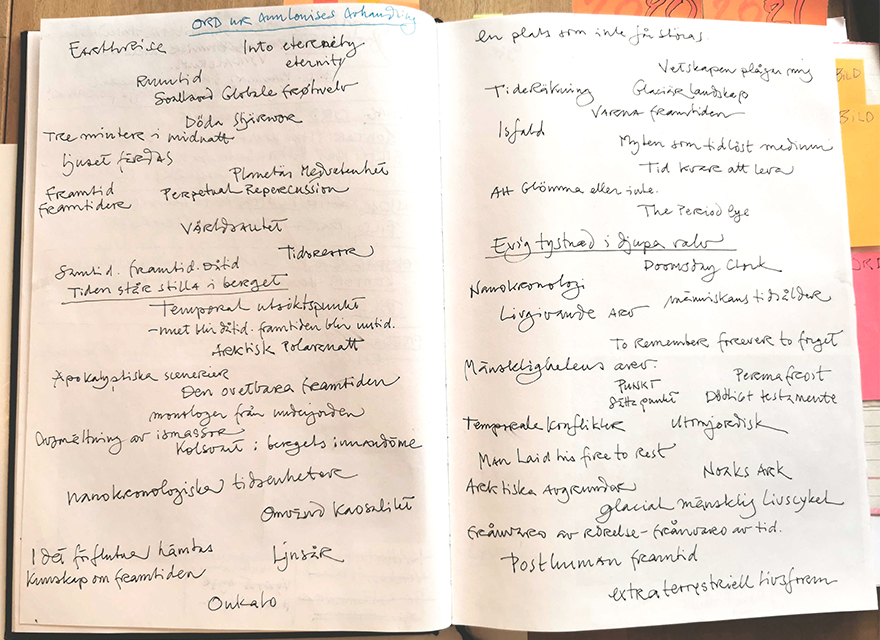 ORD UR Annlouises Avhandling
Earthrise
Into eternity
eternity
Rumtid
Svalbard Globale frøhvelv
Döda stjärnor
Tre minuter i midnatt
ljuset färdas
Planetär Medvetenhet
Framtid
framtider
Perpetual Repercussion
Världsaltet
Tidsrester
Samtid. framtid. Dåtid
Tiden står stilla i berget
Temporal utsiktspunkt
- nuet blir dåtid. framtiden blir nutid.
Arktisk Polarnatt
Apokalyptiska scenerier
Den ovetbara framtiden
monologen från underjorden
Avsmältning av ismassor
Kolsvart i bergets innandöme
nanokronologiska tidsenheter
Omvänd Kaosalitet
I det förflutna hämtas
Kunskap om framtiden
Ljusår
Onkalo
En plats som inte får störas.
Vetskapen plågar mig
Tideräkning
Glaciär landskap
VARNA framtiden
Isfald
Myten som tidlöst medium
Tid kvar att leva
Att Glömma eller inte.
The Period Eye
Evig tystnad i djupa valv
Doomsday Clock
Nanokronologi
människans tidsålder
Livgivande Arv
To remember forever to forget
Mänsklighetens arv.
PUNKT
Permafrost
Dödligt testamente
Temporala Konflikter
Utomjordisk
Man Laid his fire to Rest
Noaks Ark
Arktiska Avgrunder
glacial mänsklig Livscykel
Frånvaro av rörelse - frånvaro av tid.
Posthuman framtid
extraterrystriell livsform
BILD
BILD
ORD